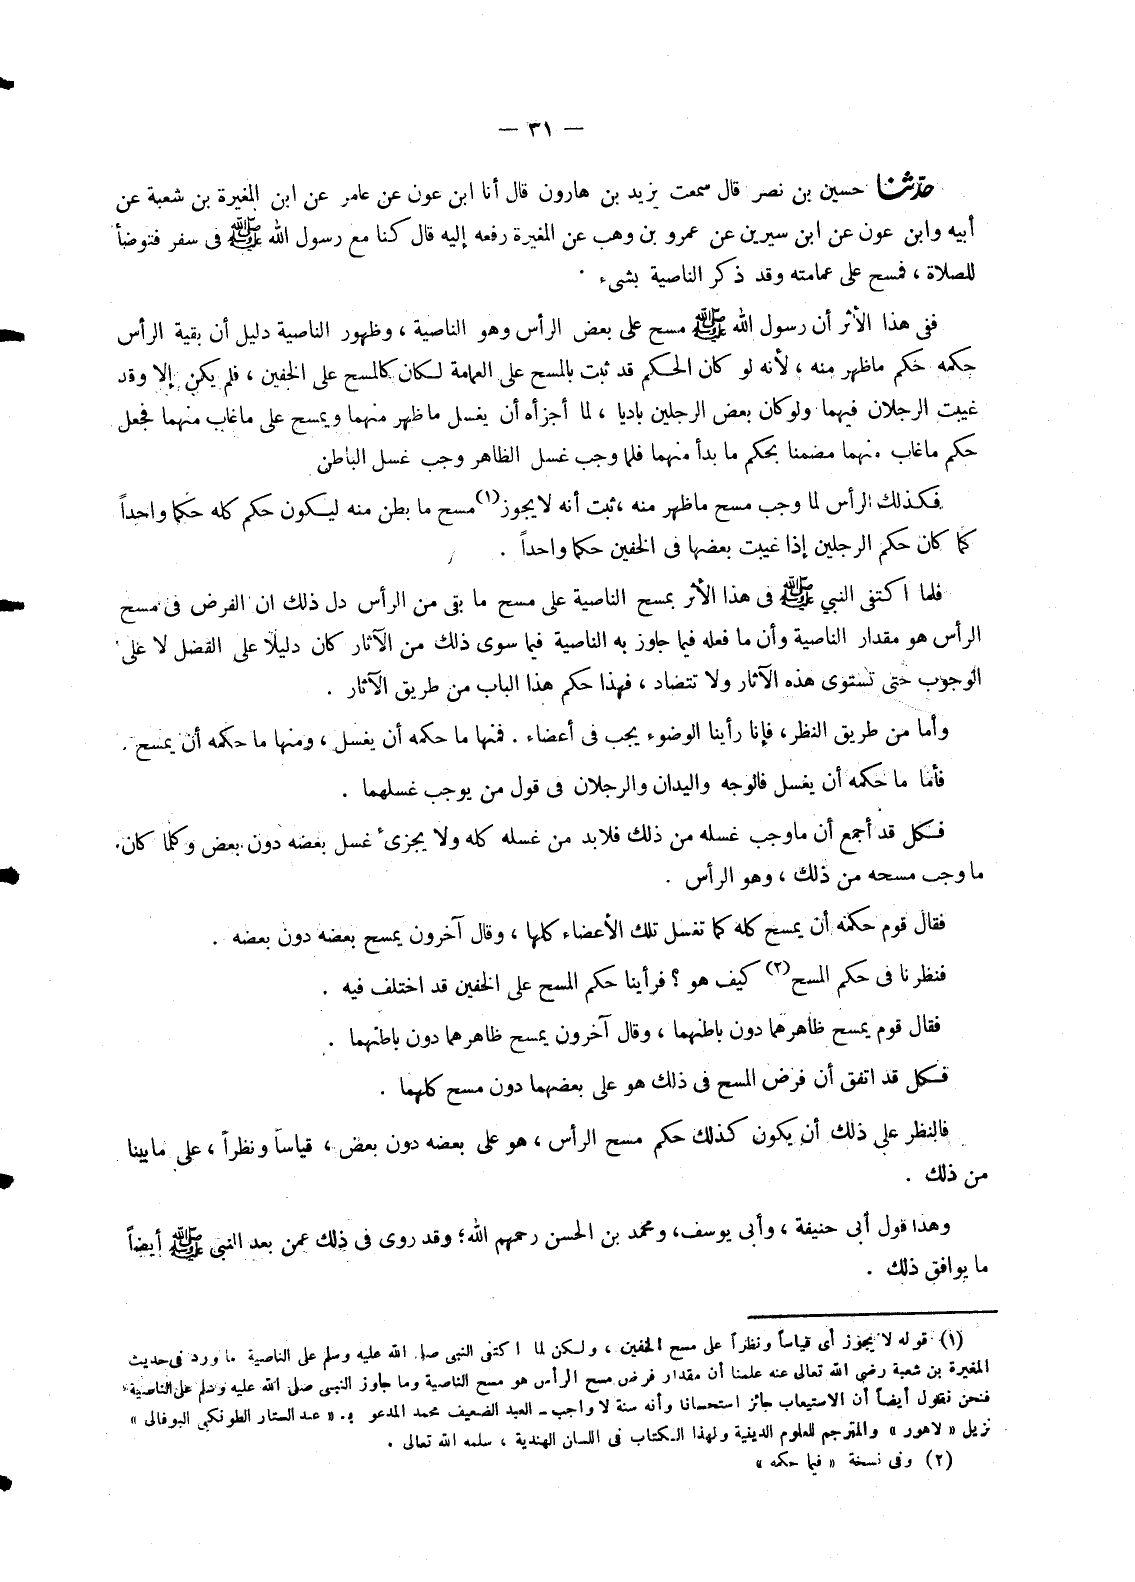 — ٣١ —
حدثنا حسين بن نصر قال سمعت يزيد بن هارون قال أنا ابن عون عن عامر عن ابن المغيرة بن شعبة عن
أبيه وابن عون عن ابن سيرين عن عمرو بن وهب عن المغيرة رفعه إليه قال كنا مع رسول الله ﷺ فى سفر فتوضأ
للصلاة ، فمسح على عمامته وقد ذكر الناصية بشىء .
ففى هذا الأثر أن رسول الله ﷺ مسح على بعض الرأس وهو الناصية ، وظهور الناصية دليل أن بقية الرأس
حكمه حكم ماظهر منه ، لأنه لو كان الحكم قد ثبت بالمسح على العمامة لكان كالمسح على الخفين ، فلم يكن إلا وقد
غيبت الرجلان فيهما ولوكان بعض الرجلين باديا ، لما أجزأه أن يغسل ماظهر منهما ويمسح على ماغاب منهما فجعل
حكم ماغاب منهما مضمنا بحكم ما بدأ منهما فلما وجب غسل الظاهر وجب غسل الباطن
فكذلك الرأس لما وجب مسح ماظهر منه ، ثبت أنه لايجوز(١) مسح ما بطن منه ليكون حكم كله حكما واحداً
كما كان حكم الرجلين إذا غيبت بعضها فى الخفين حكما واحداً .
فلما اكتفى النبي ﷺ فى هذا الأثر بمسح الناصية على مسح ما بقى من الرأس دل ذلك ان الفرض فى مسح
الرأس هو مقدار الناصية وأن ما فعله فيما جاوز به الناصية فيما سوى ذلك من الآثار كان دليلا على الفضل لا على
الوجوب حتى تستوى هذه الآثار ولا تتضاد ، فهذا حكم هذا الباب من طريق الآثار .
وأما من طريق النظر، فإنا رأينا الوضوء يجب فى أعضاء . فمنها ما حكمه أن يغسل ، ومنها ما حكمه أن يمسح .
فأما ما حكمه أن يغسل فالوجه واليدان والرجلان فى قول من يوجب غسلهما .
فكل قد أجمع أن ماوجب غسله من ذلك فلابد من غسله كله ولا يجزىء غسل بعضه دون بعض وكلما كان
ماوجب مسحه من ذلك ، وهو الرأس .
فقال قوم حكمه أن يمسح كله كما تغسل تلك الأعضاء كلها ، وقال آخرون يمسح بعضه دون بعضه .
فنظرنا فى حكم المسح(٢) كيف هو ؟ فرأينا حكم المسح على الخفين قد اختلف فيه .
فقال قوم يمسح ظاهرهما دون باطنهما ، وقال آخرون يمسح ظاهرهما دون باطنهما .
فكل قد اتفق أن فرض المسح فى ذلك هو على بعضهما دون مسح كلهما .
فالنظر على ذلك أن يكون كذلك حكم مسح الرأس ، هو على بعضه دون بعض ، قياساً ونظراً ، على مابينا
من ذلك .
وهذا قول أبى حنيفة ، وأبى يوسف، ومحمد بن الحسن رحمهم الله؛ وقد روى فى ذلك عمن بعد النبى ﷺ أيضاً
ما يوافق ذلك .
(١) قوله لايجوز أى قياساً ونظراً على مسح الخفين ، ولكن لما اكتفى النبى صلى الله عليه وسلم على الناصية ماورد فى حديث
المغيرة بن شعبة رضى الله تعالى عنه علمنا أن مقدار فرض مسح الرأس هو مسح الناصية وما جاوز النبى صلى الله عليه وسلم على الناصية
فنحن نقول أيضاً أن الاستيعاب جائز استحسانا وأنه سنة لا واجب ـ العبد الضعيف محمد المدعو بـ « عبد الستار الطونكى البوفالى »
نزيل « لاهور » والمترجم للعلوم الدينية ولهذا الكتاب فى اللسان الهندية ، سلمه الله تعالى .
(٢) وفى نسخة « فيما حكمه »